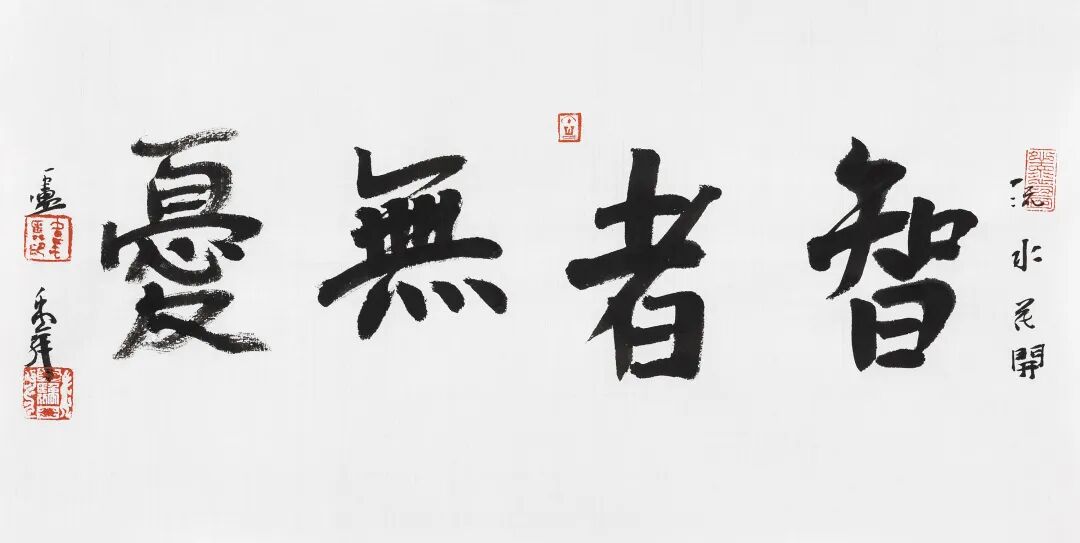 流水花開
智者無憂